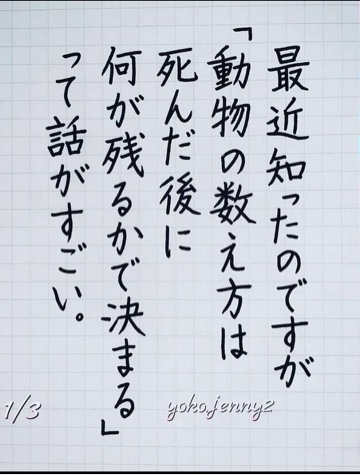 最近知ったのですが
「動物の数え方は
死んだ後に
何が残るかで決まる」
って話がすごい。
1/3
yoko.jenny2